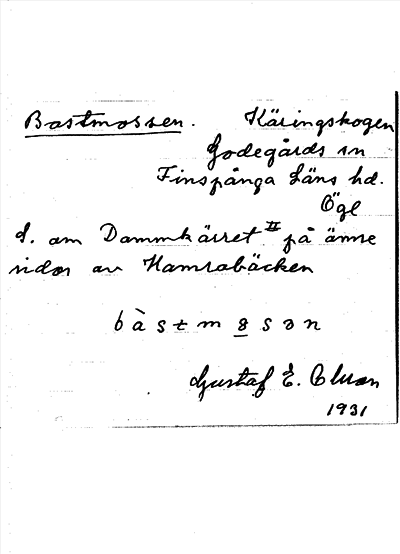 Bastmossen. Käringskogen
Godegårds sn
Finspånga Läns hd.
Ögl
S. om Dammkärret II på ömse
sidor av Hamrabäcken
bàstmosən
Gustaf E. Olson
1931